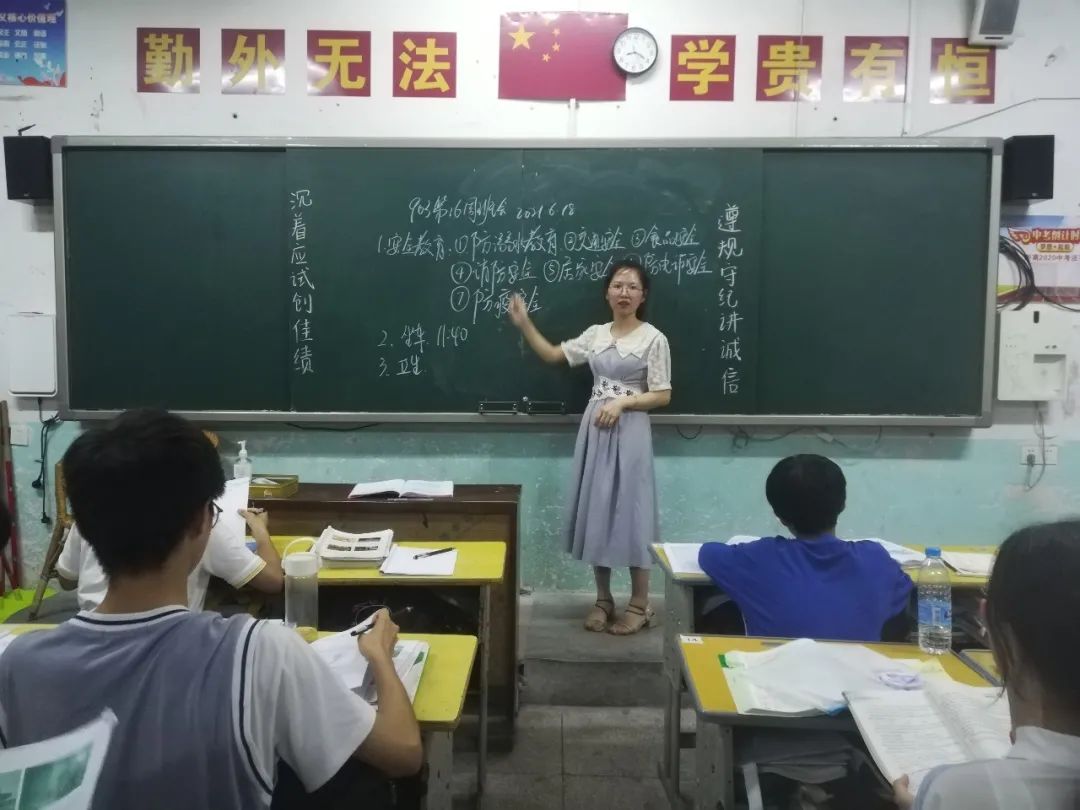 核心价值观
勤外无法
学贵有恒
903第16周班会 2021.6.18
1.安全教育:①防溺水教育②交通安全③食品安全
④消防安全⑤居家安全
⑦防疫安全
2.坐车 11:40
3.卫生
沉着应试创佳绩
遵规守纪讲诚信
中考倒计时